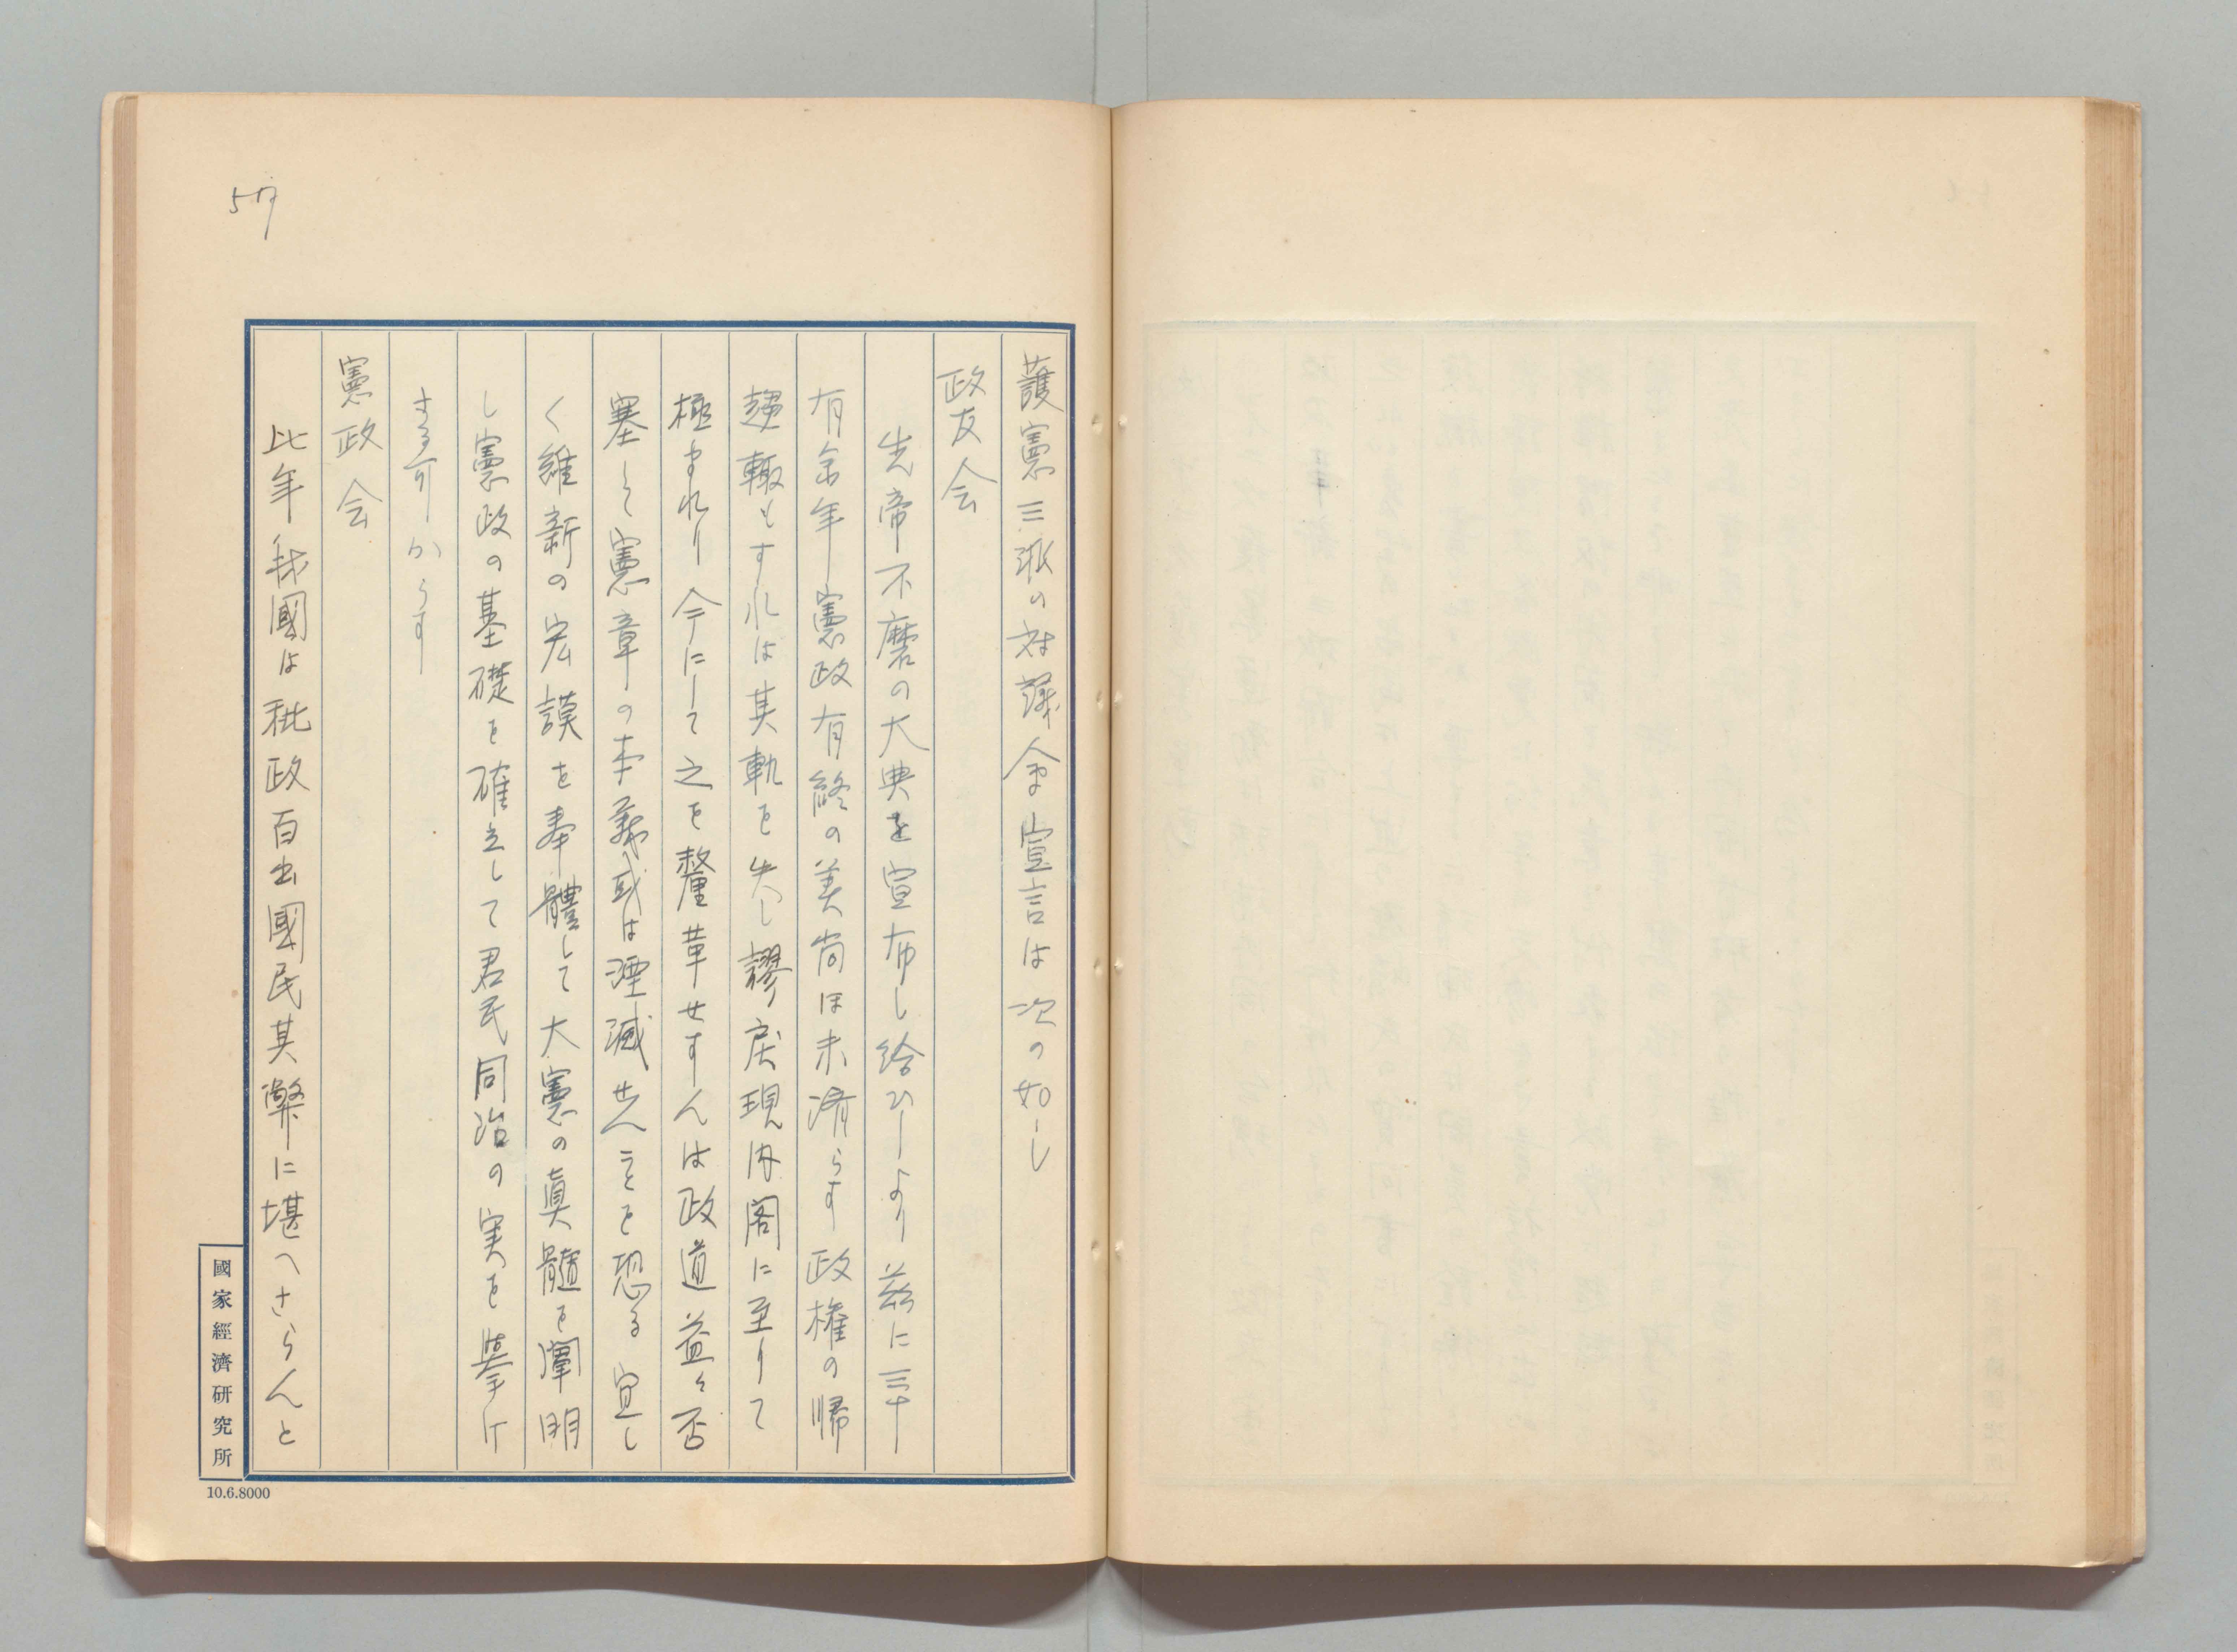 護憲三派の対議会宣言は次の如し
政友会
先帝不磨の大典を宣布し給ひしより茲に三十
有余年憲政有終の美尚ほ未済らす政権の帰
趨輙もすれは其軌を失し謬戻現内閣に至りて
極まれり今にして之を釐革せすんは政道益々否
塞して憲章の本義或は湮滅せんことを恐る宜し
く維新の宏謨を奉體して大憲の真髓を闡明
し憲政の基礎を確立して君民同治の実を挙け
さる可からす
憲政会
比年我國は秕政百出國民其弊に堪へさらんと
國家經濟研究所
10.6.8000